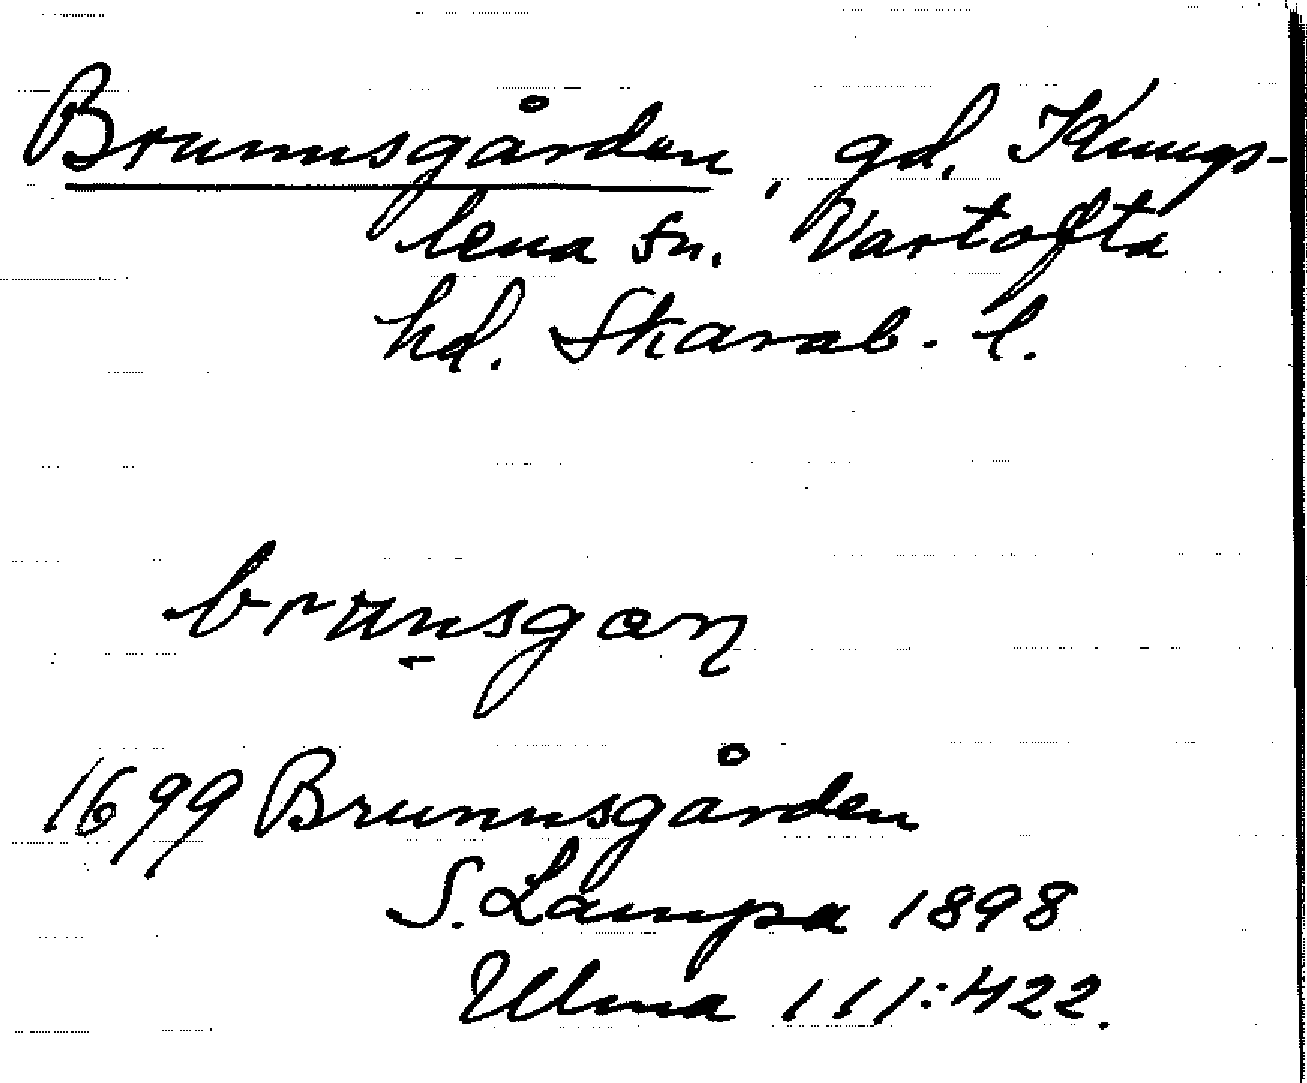 Brunnsgården, gd. Kungs-
lena sn. Vartofta
hd. Skarab. l.
brunsgaɳ
1699 Brunnsgården
S. Lampa 1898
Ulma 111:422.